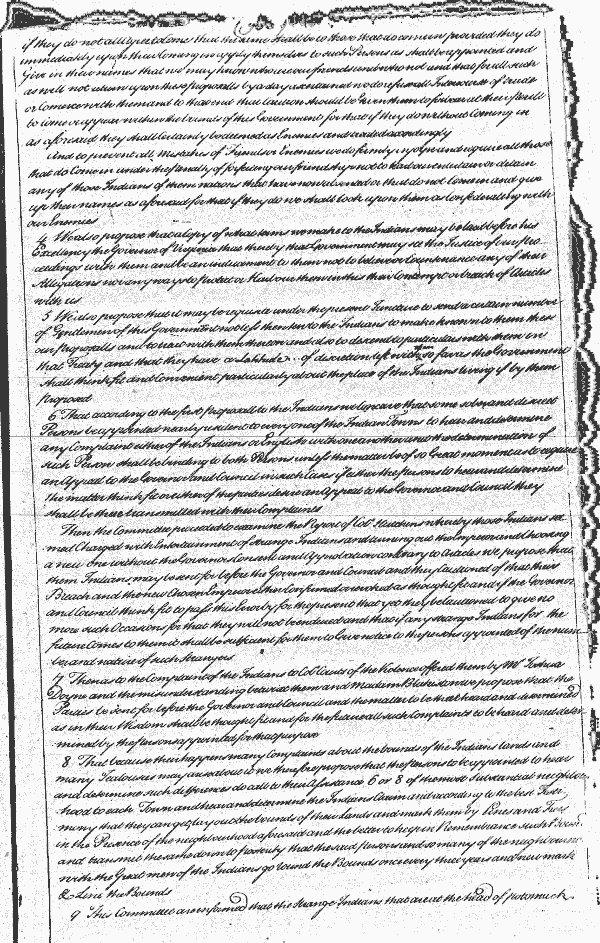 if they do not all agree to Come that the same shall be to those that do come in provided they do
immediately upon their Coming in apply themselves to such Persons as shall be appointed and
Give in their names that we may know who are our friends and who not and that for all such
as will not return upon these proposalls by a day
or Comerce with them and to that end that Caution should be Given them to forbear at their Perill
to come or appear within the bounds of this Government for that if they do without Coming in
as aforesaid they shall Certainly be deemed as Enemies and treated accordingly
And to prevent all mistakes of Friends or Enemies we do firmly enjoyn and require all those
that do Come in under the Penalty of forfeiting our friendship not to harbour entertain or detain
any of those Indians of them nations that have now absented or that do not Come in and give
up their names as aforesaid for that if they do we shall look upon them as Confederating with
our Enemies
4 We also propose that a Copy of what terms we make to the Indians may be laid before his
Excellency the Governor of Virginia that thereby that Government may see the Justice of our pro-
ceedings with them and be an inducement to them not to believe or Countenance any of their
Allegations nor any ways to protect or Harbour them in this their Contempt or breach of Articles
with us
5 We also propose that it may be requisite under the present Juncture to send a certain number
of Gentlemen of this Government not less than ten to the Indians to make known to them these
our proposalls and to treat with them thereon and also to descend to particulars with them on
that Treaty and that they have a Latitude of discretion left with them so far as the Government
shall think fit and Convenient particularly about the place of the Indians living if by them
proposed
6 That according to the first proposall to the Indians we Conceive that some sober and discreet
Persons be appointed nearly resident to every one of the Indian Towns to hear and determine
any Complaint either of the Indians or English with one another and the determination of
such Person shall be binding to both Persons unless the matter be of so Great moment as to require
an Appeal to the Governor and Council in such Cases if either the Persons to hear and determine
the matter think fit or either of the parties desire an Appeal to the Governor and Council they
shall be their transmitted with their Complaints
Then the Committee proceeded to examine the Report of Coll Hutchins whereby those Indians are
mett Charged with Entertainment of Strange Indians and turning out the Emperor and Choosing
a new one without the Governors Consent and Approbation contrary to Articles we propose that
them Indians may be sent for before the Governor and Council and they Cautioned of that their
Breach and the new Chosen Emperor then Confirmed or rejected as thought fit and if the Governor
and Council think fit to pass this breach by for the present that yet they be Cautioned to give no
more such Occasions for that they will not be endured and that if any strange Indians for the
future Comes to them it shall be sufficient for them to Give notice to the persons appointed of the num-
ber and nature of such Strangers
7 Then as to the Complaint of the Indians to Coll of the Violence offered them by Mr Joshua
Doyne and the misunderstanding betwixt them and Madam we propose that the
Parties be sent for before the Governor and Council and the matter to be there heard and determined
as in their Wisdom shall be thought fit and for the future all such Complaints to be heard and deter-
mined by the persons appointed for that purpose
8 That because their happens many Complaints about the bounds of the Indians lands and
many Jealousies may arise about it we therefore propose that the Persons to be appointed to hear
and determine such differences do call to their Assistance 6 or 8 of the most Substantial neighbour-
hood to each Town and hear and determine the Indians Claim and according to the best Testi-
mony that they can get lay out the bounds of their Lands and mark them by Lines and Trees
in the Presence of the neighbourhood aforesaid and the better to keep in Remembrance such Bounds
and transmit the same down to posterity that the said Persons and so many of the neighbours
with the Great men of the Indians go round the Bounds once every three years and new mark
& Line the Bounds
9 This Committee are informed that the strange Indians that are at the head of potomack